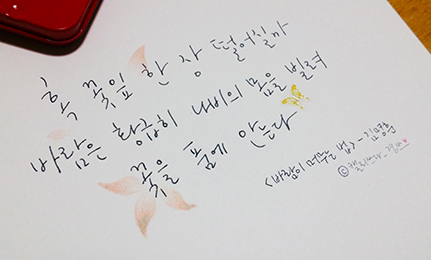 혹 꽃잎 한 장 떨어질까
바람은 황급히 나비의 몸을 빌려
꽃을 품에 안는다
<바람이 머무는 법> - 김
©캘리